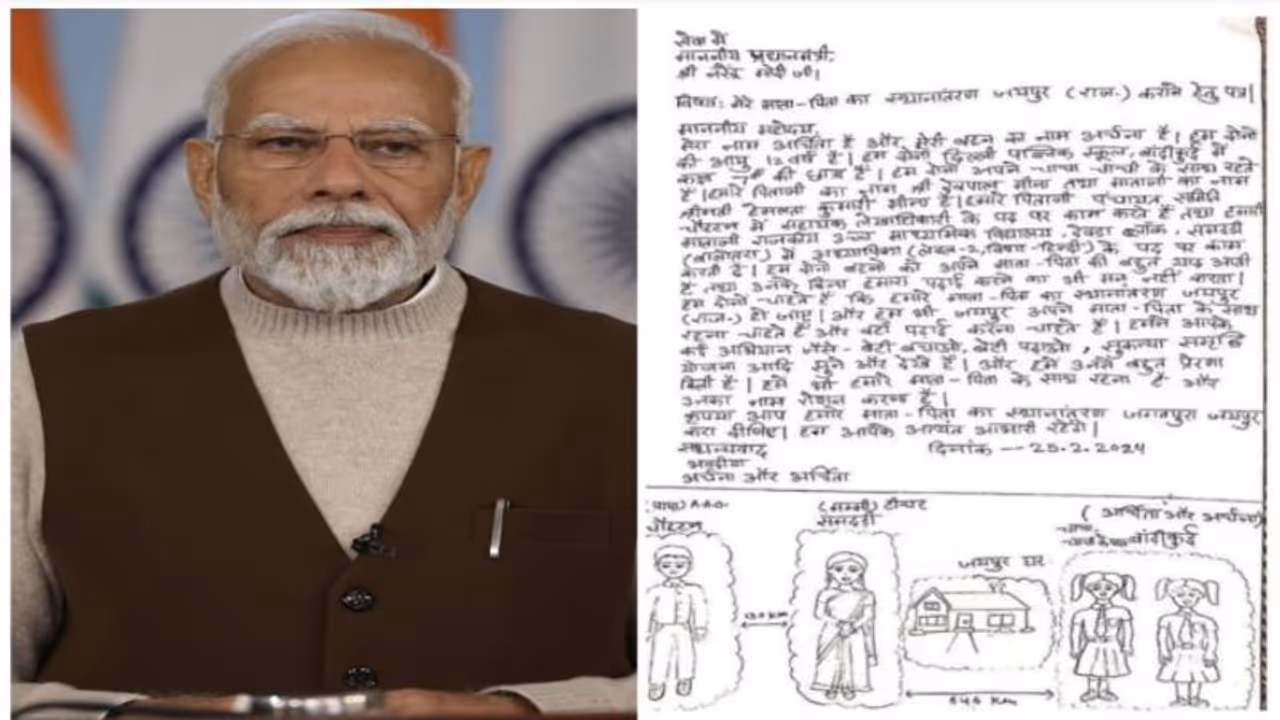 सेवा में
माननीय प्रधानमंत्री,
श्री नरेंद्र मोदी जी।
विषय: मेरे माता-पिता का स्थानांतरण जयपुर (राज.) कराने हेतु पत्र।
माननीय महोदय,
मेरा नाम अर्चिता है और मेरी बहन का नाम अर्चना है। हम दोनों
की आयु 12 वर्ष है। हम दोनों दिल्ली पब्लिक स्कूल, बांदीकुई में
कक्षा की छात्रा हैं। हम दोनों अपने चाचा-चाची के साथ रहते
हैं। हमारे पिताजी का नाम श्री देवपाल मीना तथा माताजी का नाम
श्रीमती हेमलता कुमारी मीना है। हमारे पिताजी पंचायत समिति
चौहटन में सहायक लेखाधिकारी के पद पर काम करते हैं तथा हमारी
माताजी राजकीय उच्च माध्यमिक विद्यालय, देवड़ा ब्लॉक, समदड़ी
(बालोतरा) में अध्यापिका (लेवल-2, विषय-हिन्दी) के पद पर काम
करती है। हम दोनों बहनों को अपने माता-पिता की बहुत याद आती
है तथा उनके बिना हमारा पढ़ाई करने का भी मन नहीं करता।
हम दोनों चाहते हैं कि हमारे माता-पिता का स्थानांतरण जयपुर
(राज.) हो जाए। और हम भी जयपुर अपने माता-पिता के साथ
रहना चाहते हैं और वहाँ पढ़ाई करना चाहते हैं। हमने आपके
कई अभियान जैसे- बेटी बचाओ, बेटी पढ़ाओ, सुकन्या समृद्धि
योजना आदि सुने और देखे हैं। और हमें उनसे बहुत प्रेरणा
मिली है। हमें भी हमारे माता-पिता के साथ रहना है और
उनका नाम रोशन करना है।
कृपया आप हमारे माता-पिता का स्थानांतरण जगतपुरा जयपुर
करा दीजिए। हम आपके अत्यंत आभारी रहेंगे।
सधन्यवाद दिनांक --- 25.2.2024
अर्चना और अर्चिता
(पापा) A.A.O. (मम्मी) टीचर (अर्चिता और अर्चना)
चौहटन समदड़ी बांदीकुई
जयपुर घर
130 km